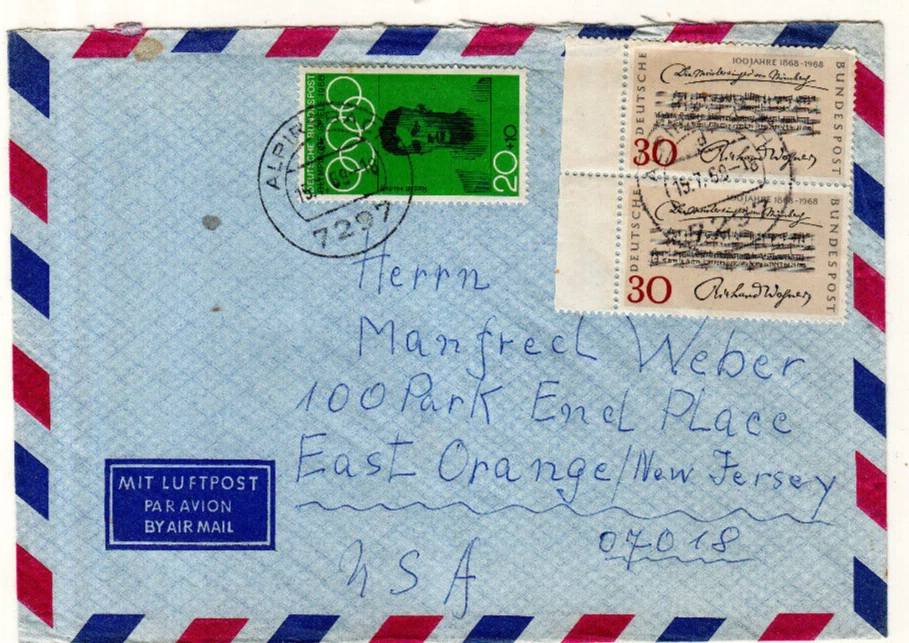 DEUTSCHE BUNDESPOST
20+10
7297
100 JAHRE 1868-1968
Die Meistersinger von Nürnberg
DEUTSCHE
BUNDESPOST
30
Richard Wagner
15.7.68-18
100 JAHRE 1868-1968
Die Meistersinger von Nürnberg
DEUTSCHE
BUNDESPOST
30
Richard Wagner
Herrn
Manfred Weber
100 Park End Place
East Orange/New Jersey
07018
USA
MIT LUFTPOST
PAR AVION
BY AIR MAIL